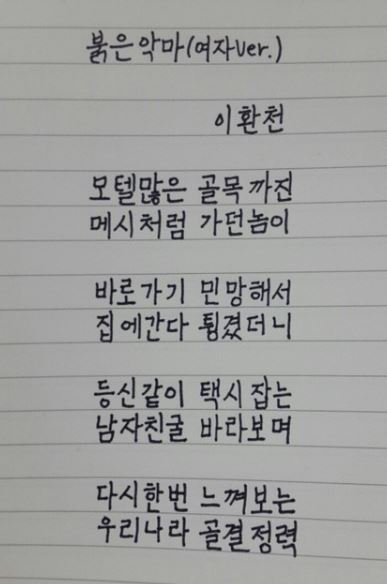 붉은악마(여자Ver.)
이환천
모텔많은 골목까진
메시처럼 가던놈이
바로가기 민망해서
집에간다 튕겼더니
등신같이 택시잡는
남자친굴 바라보며
다시한번 느껴보는
우리나라 골결정력